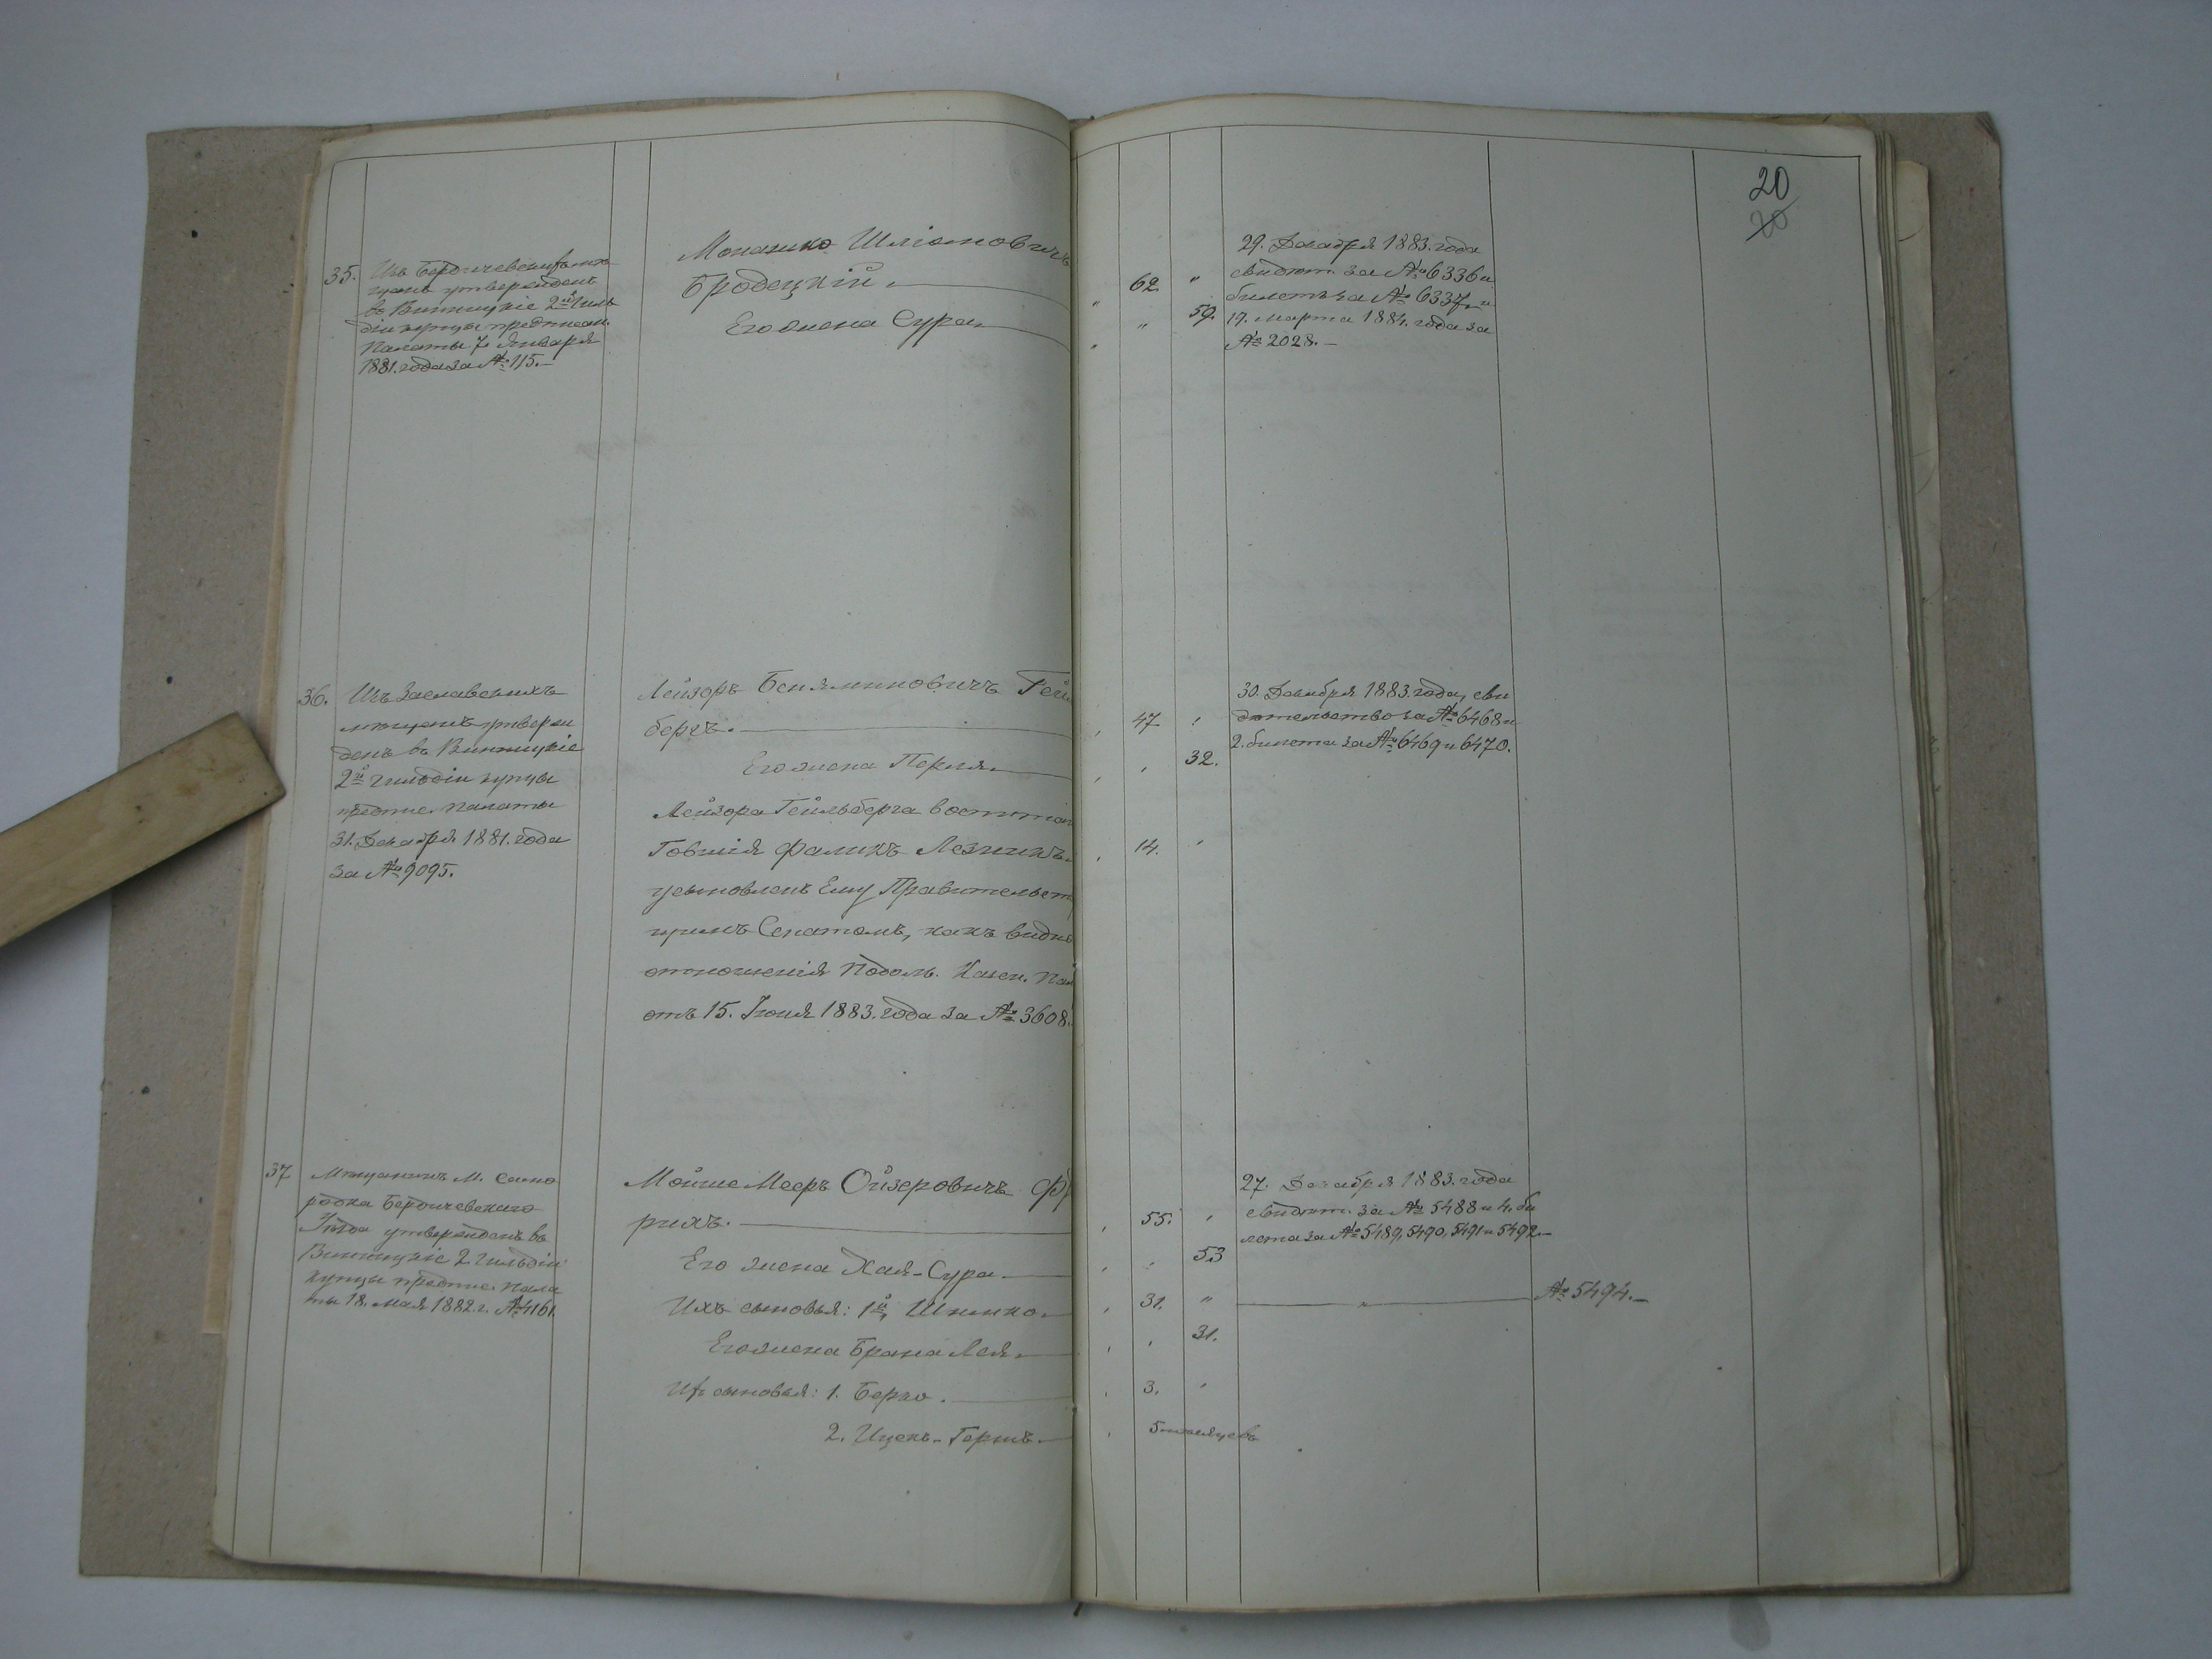 20
20
35.
Изъ Бердичевскихъ мѣ
щанъ утвержденъ
въ Винницкіе 2й Гиль
діи купцы предписан.
Палаты 7 Января
1881. года за № 115.
Шліомовичъ
Бродецкій.
Его жена Сура.
62 "
" 59.
29. Декабря 1883. года
свидѣт. за № 6336 и
билетъ за № 6337 и
19. Марта 1884. года за
№ 2028.
36.
Изъ Заславскихъ
мѣщанъ утверж
денъ въ Винницкіе
2й Гильдіи купцы
предпис. Палаты
31. Декабря 1881. года
за № 9095.
Лейзоръ Беняминовичъ Гей
бергъ.
Его жена Перля.
Лейзора Гейльберга воспитан
Фаликъ
усыновленъ Ему Правительст
щимъ Сенатомъ, какъ видно
отношенія Подоль. Казен. Пал
отъ 15. Іюня 1883. года за № 3608.
47 "
32.
14. "
30. Декабря 1883. года, сви
дѣтельство за № 6468 и
2. билета за № 6469 и 6470.
37
Мѣщанинъ М. Само
родка Бердичевскаго
Уѣзда утвержденъ въ
Винницкіе 2 Гильдіи
купцы предпис. Пала
ты 18. Мая 1882. г. № 4161.
Мойше Мееръ Ойзеровичъ Ф
рихъ.
Его жена Хая-Сура.
Ихъ сыновья: 1й, Шмилко.
Его жена Брана Лея.
Их сыновья: 1. Берко.
2. Ицекъ-Гершъ.
55. "
53
31. "
31.
3. "
5 мѣсяцевъ
27. Декабря 1883. года
свидѣт. за № 5488 и 4. би
лета за № 5489, 5490, 5491 и 5492.
" № 5494.